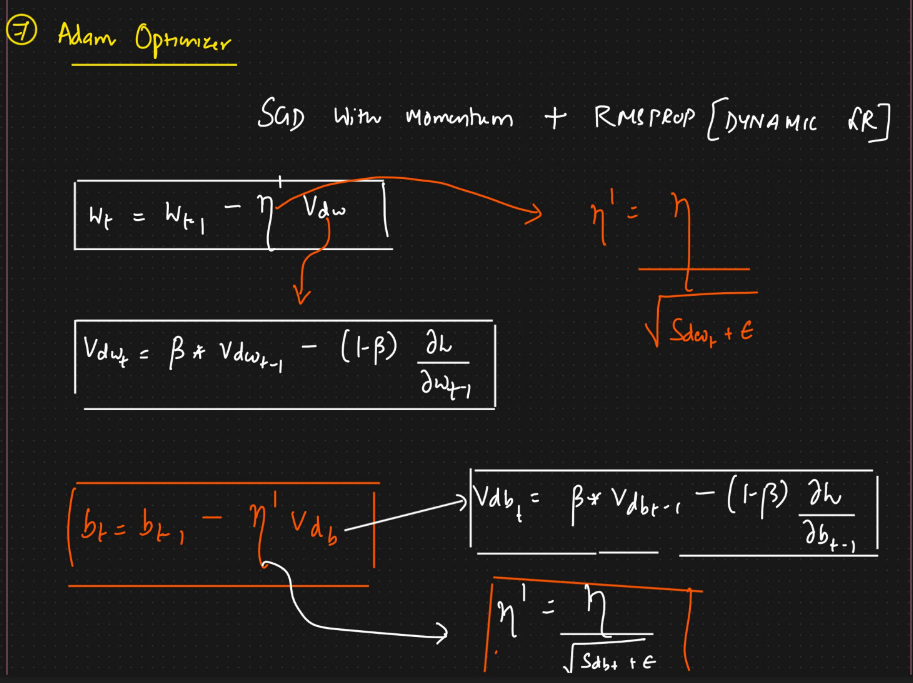 ⑦ Adam Optimizer
SGD With Momentum + RMSPROP [DYNAMIC LR]
Wt = Wt-1 - η' Vdw
η' = η / √(Sdwt + ε)
Vdwt = β * Vdwt-1 - (1-β) ∂L/∂wt-1
bt = bt-1 - η' Vdb
Vdbt = β * Vdbt-1 - (1-β) ∂L/∂bt-1
η' = η / √(Sdbt + ε)